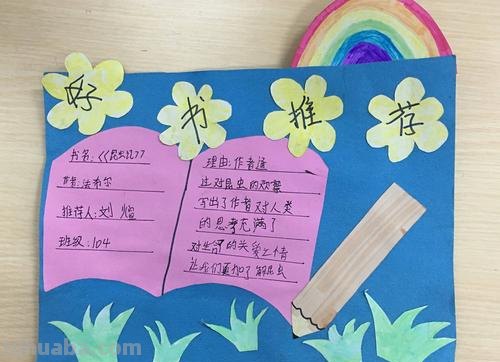 好书推荐
书名:《昆虫记》
作者:法布尔
推荐人:刘
班级:104
理由:作者通
过对昆虫的观察
写出了作者对人类
的思考充满了
对生命的关爱之情
让我们更加了解昆虫